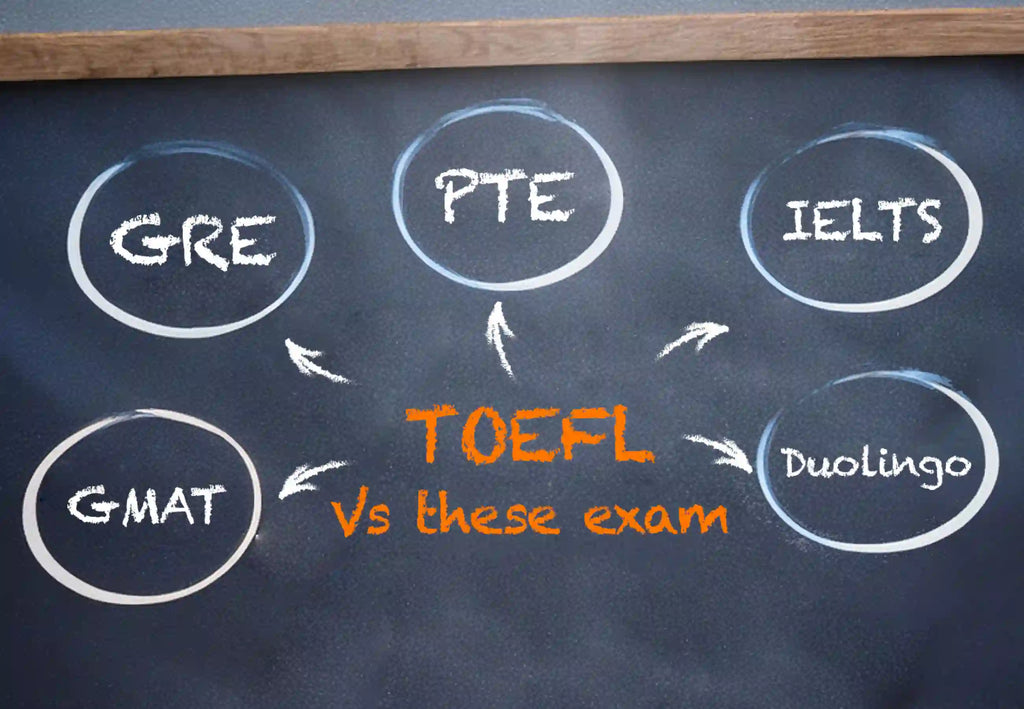 GRE
PTE
IELTS
TOEFL
Vs these exam
GMAT
Duolingo